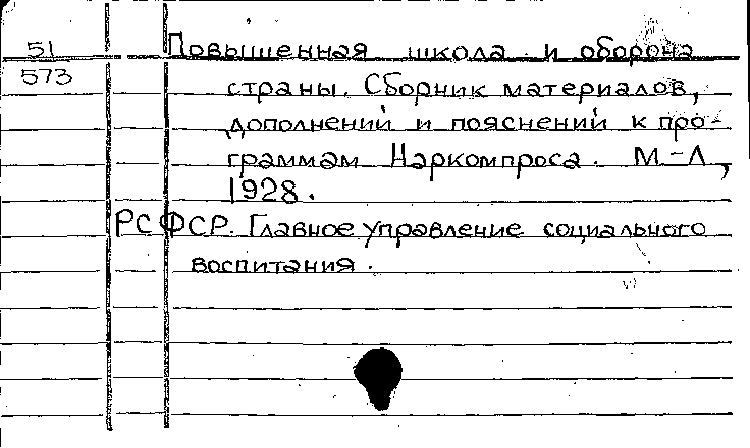 51
573
Повышенная школа и оборона
страны. Сборник материалов,
дополнений и пояснений к про-
граммам Наркомпроса. М-Л,
1928.
РСФСР. Главное управление социального
воспитания.